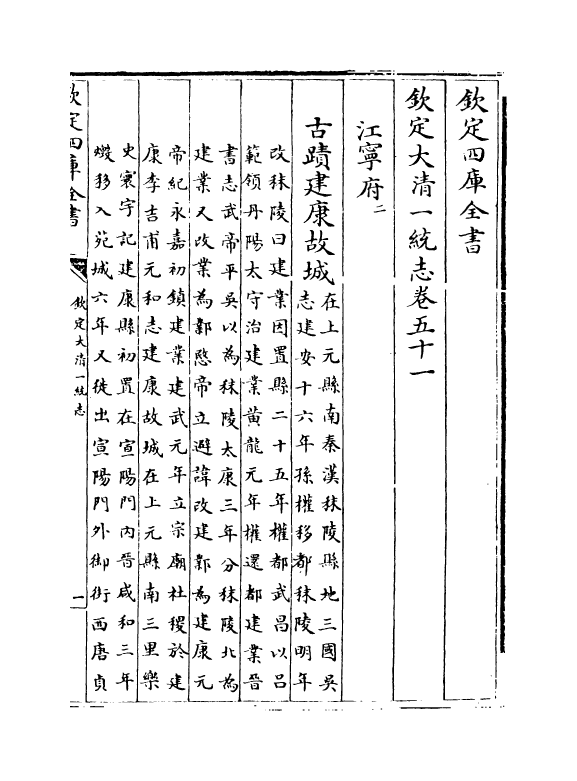 欽定四庫全書
欽定大清一統志卷五十一
江寧府二
古蹟建康故城在上元縣南秦漢秣陵縣地三國吳
志建安十六年孫權移都秣陵明年
改秣陵曰建業因置縣二十五年權都武昌以呂
範領丹陽太守治建業黄龍元年權還都建業晉
書志武帝平吳以為秣陵太康三年分秣陵北為
建業又改業為鄴愍帝立避諱改建鄴為建康元
帝紀永嘉初鎮建業建武元年立宗廟社稷於建
康李吉甫元和志建康故城在上元縣南三里樂
史寰宇記建康縣初置在宣陽門内晉咸和三年
燬移入苑城六年又徙出宣陽門外御街西唐貞
欽定四庫全書
欽定大清一統志
一